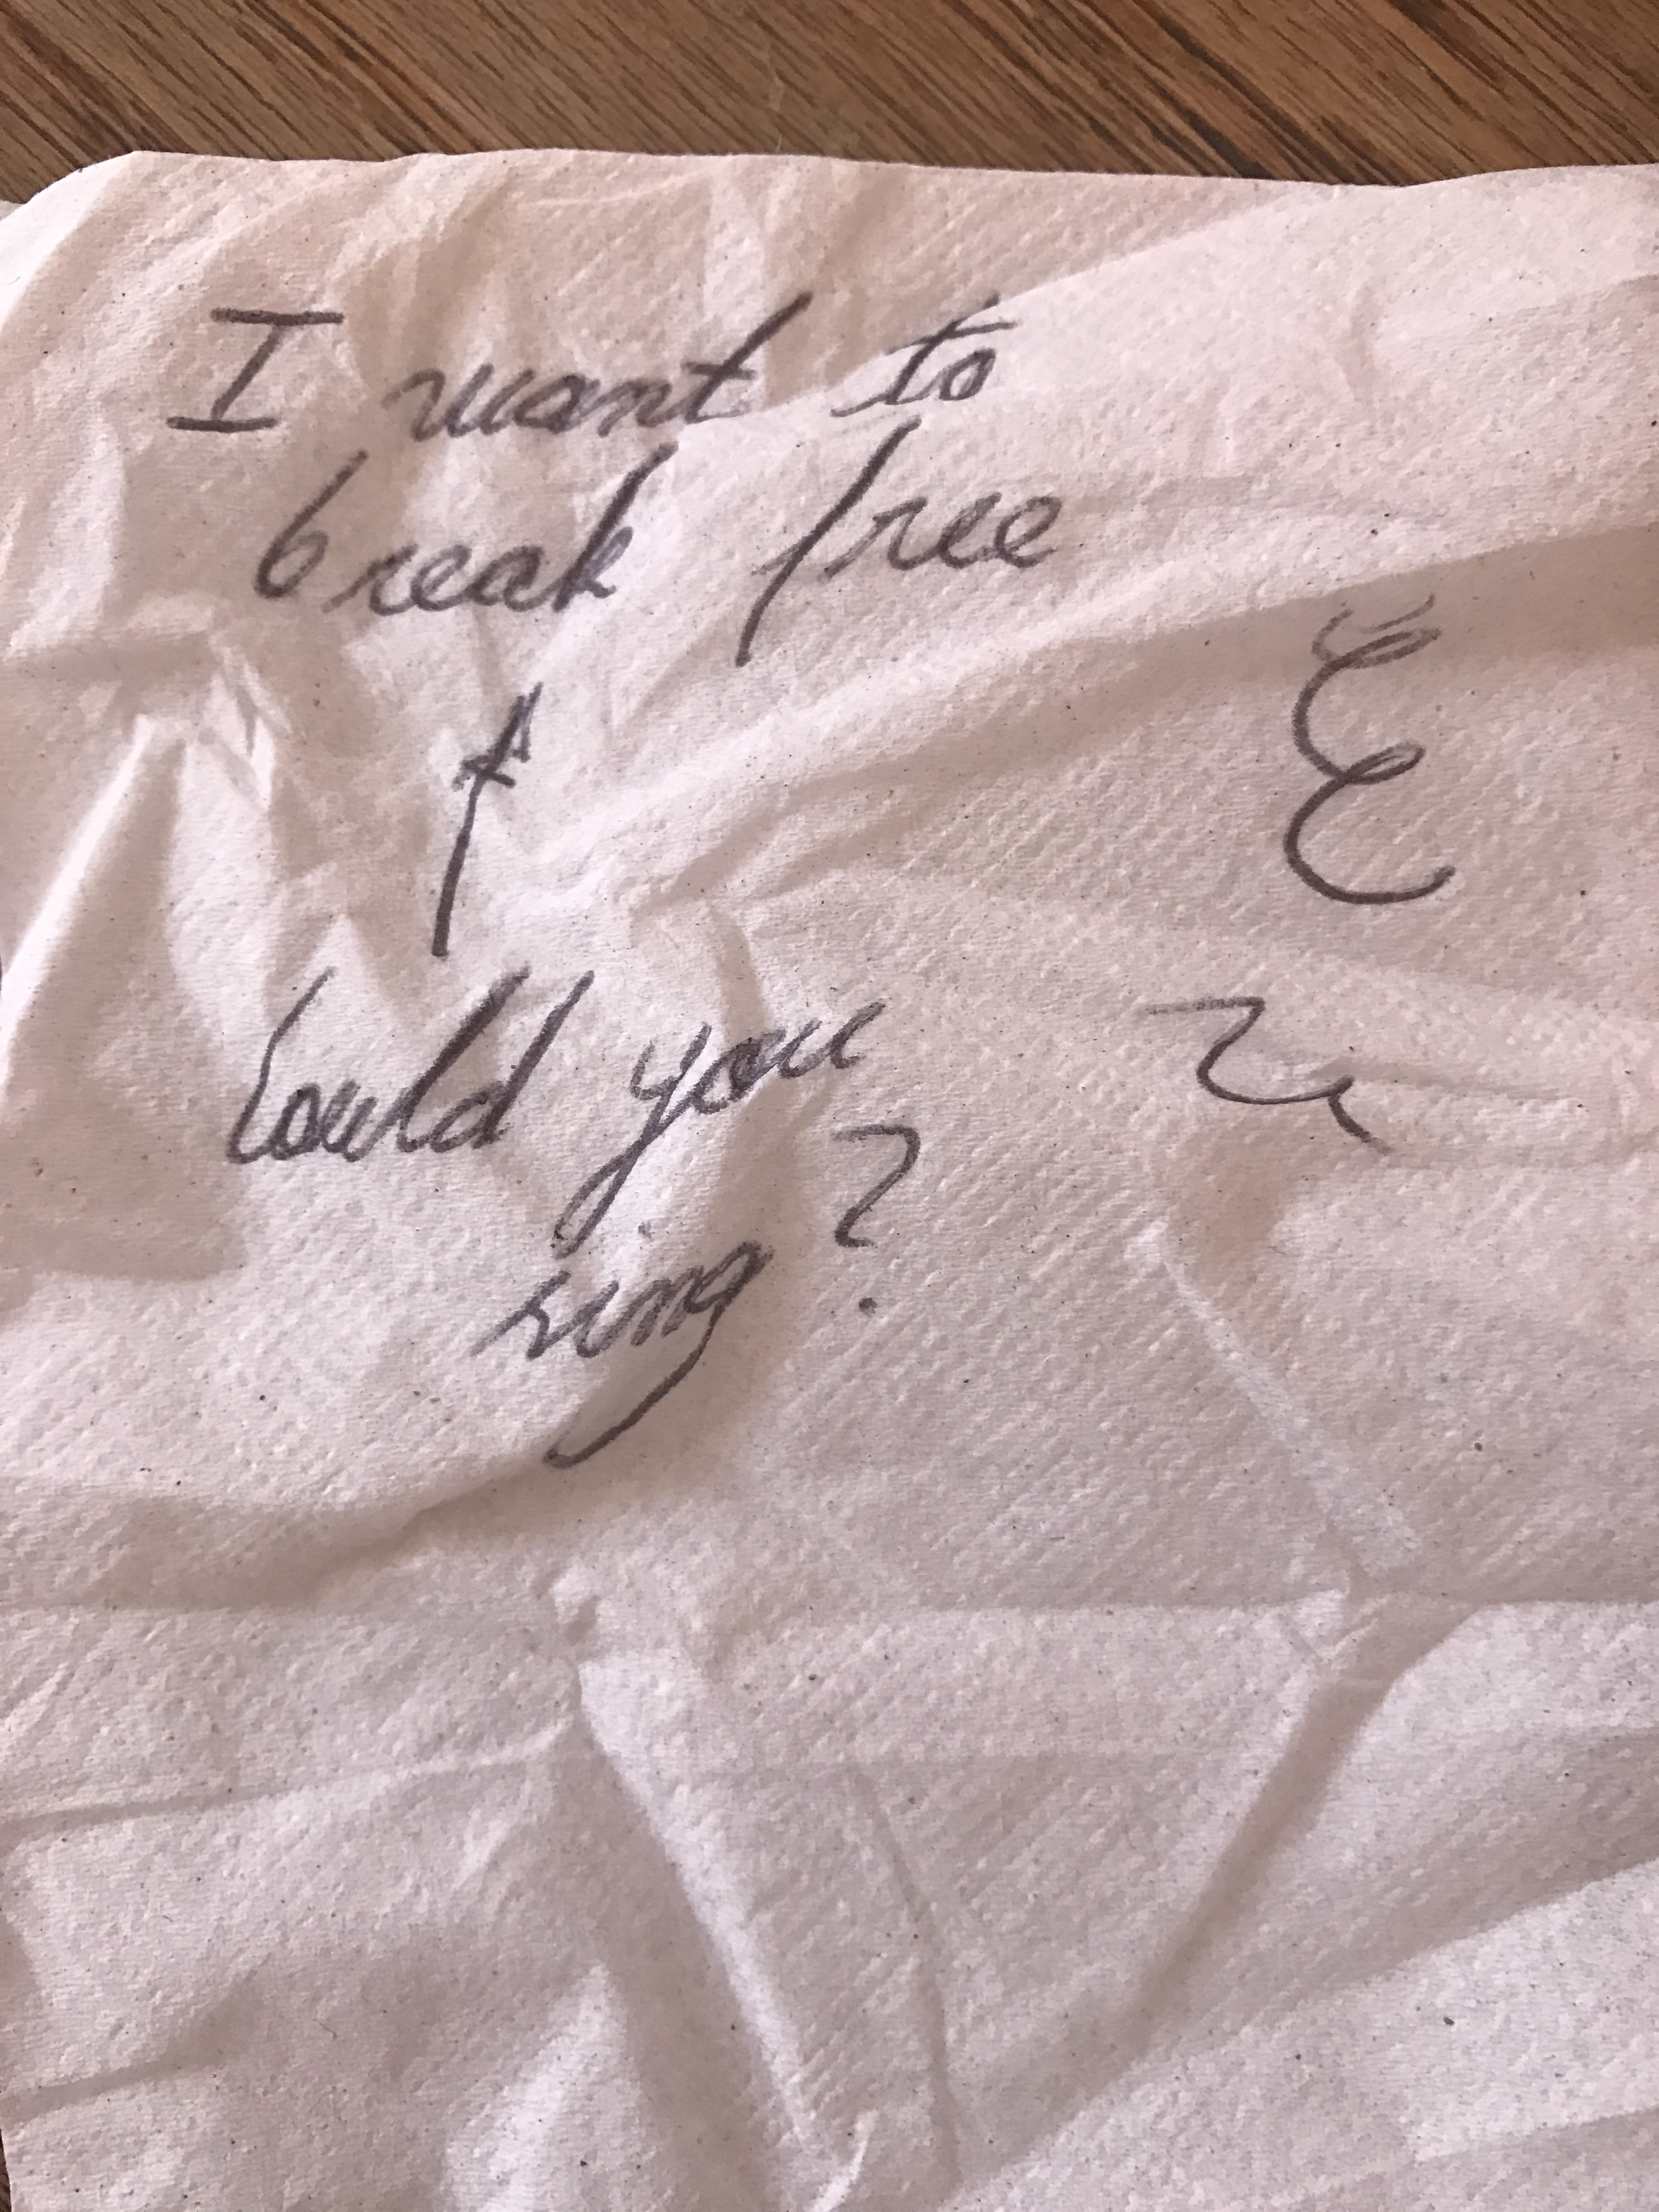 I want to
break free
Could you
sing?